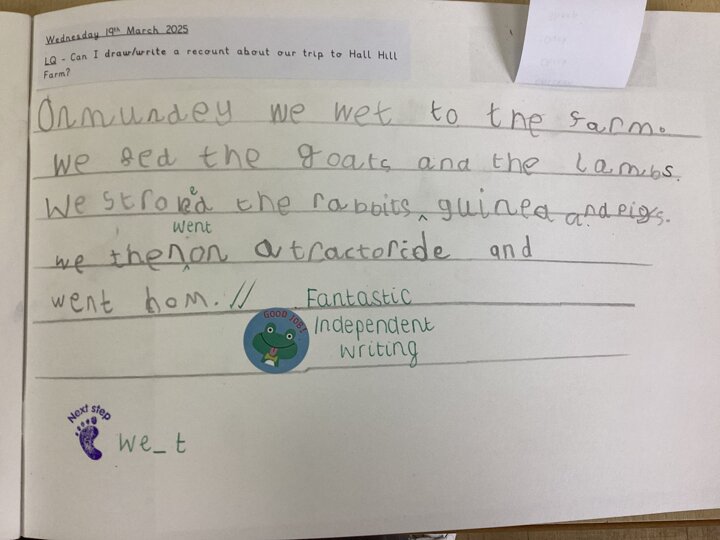 Wednesday 19th March 2025
LQ - Can I draw/write a recount about our trip to Hall Hill
Farm?
Onmundey we wet to the farm.
We fed the goats and the lambs.
e
We stroked the rabbits ‸ guinea and pigs.
went
we then ‸ on a tractoride and
went hom. //
Fantastic
GOOD JOB!
Independent
Writing
Next step
we_t